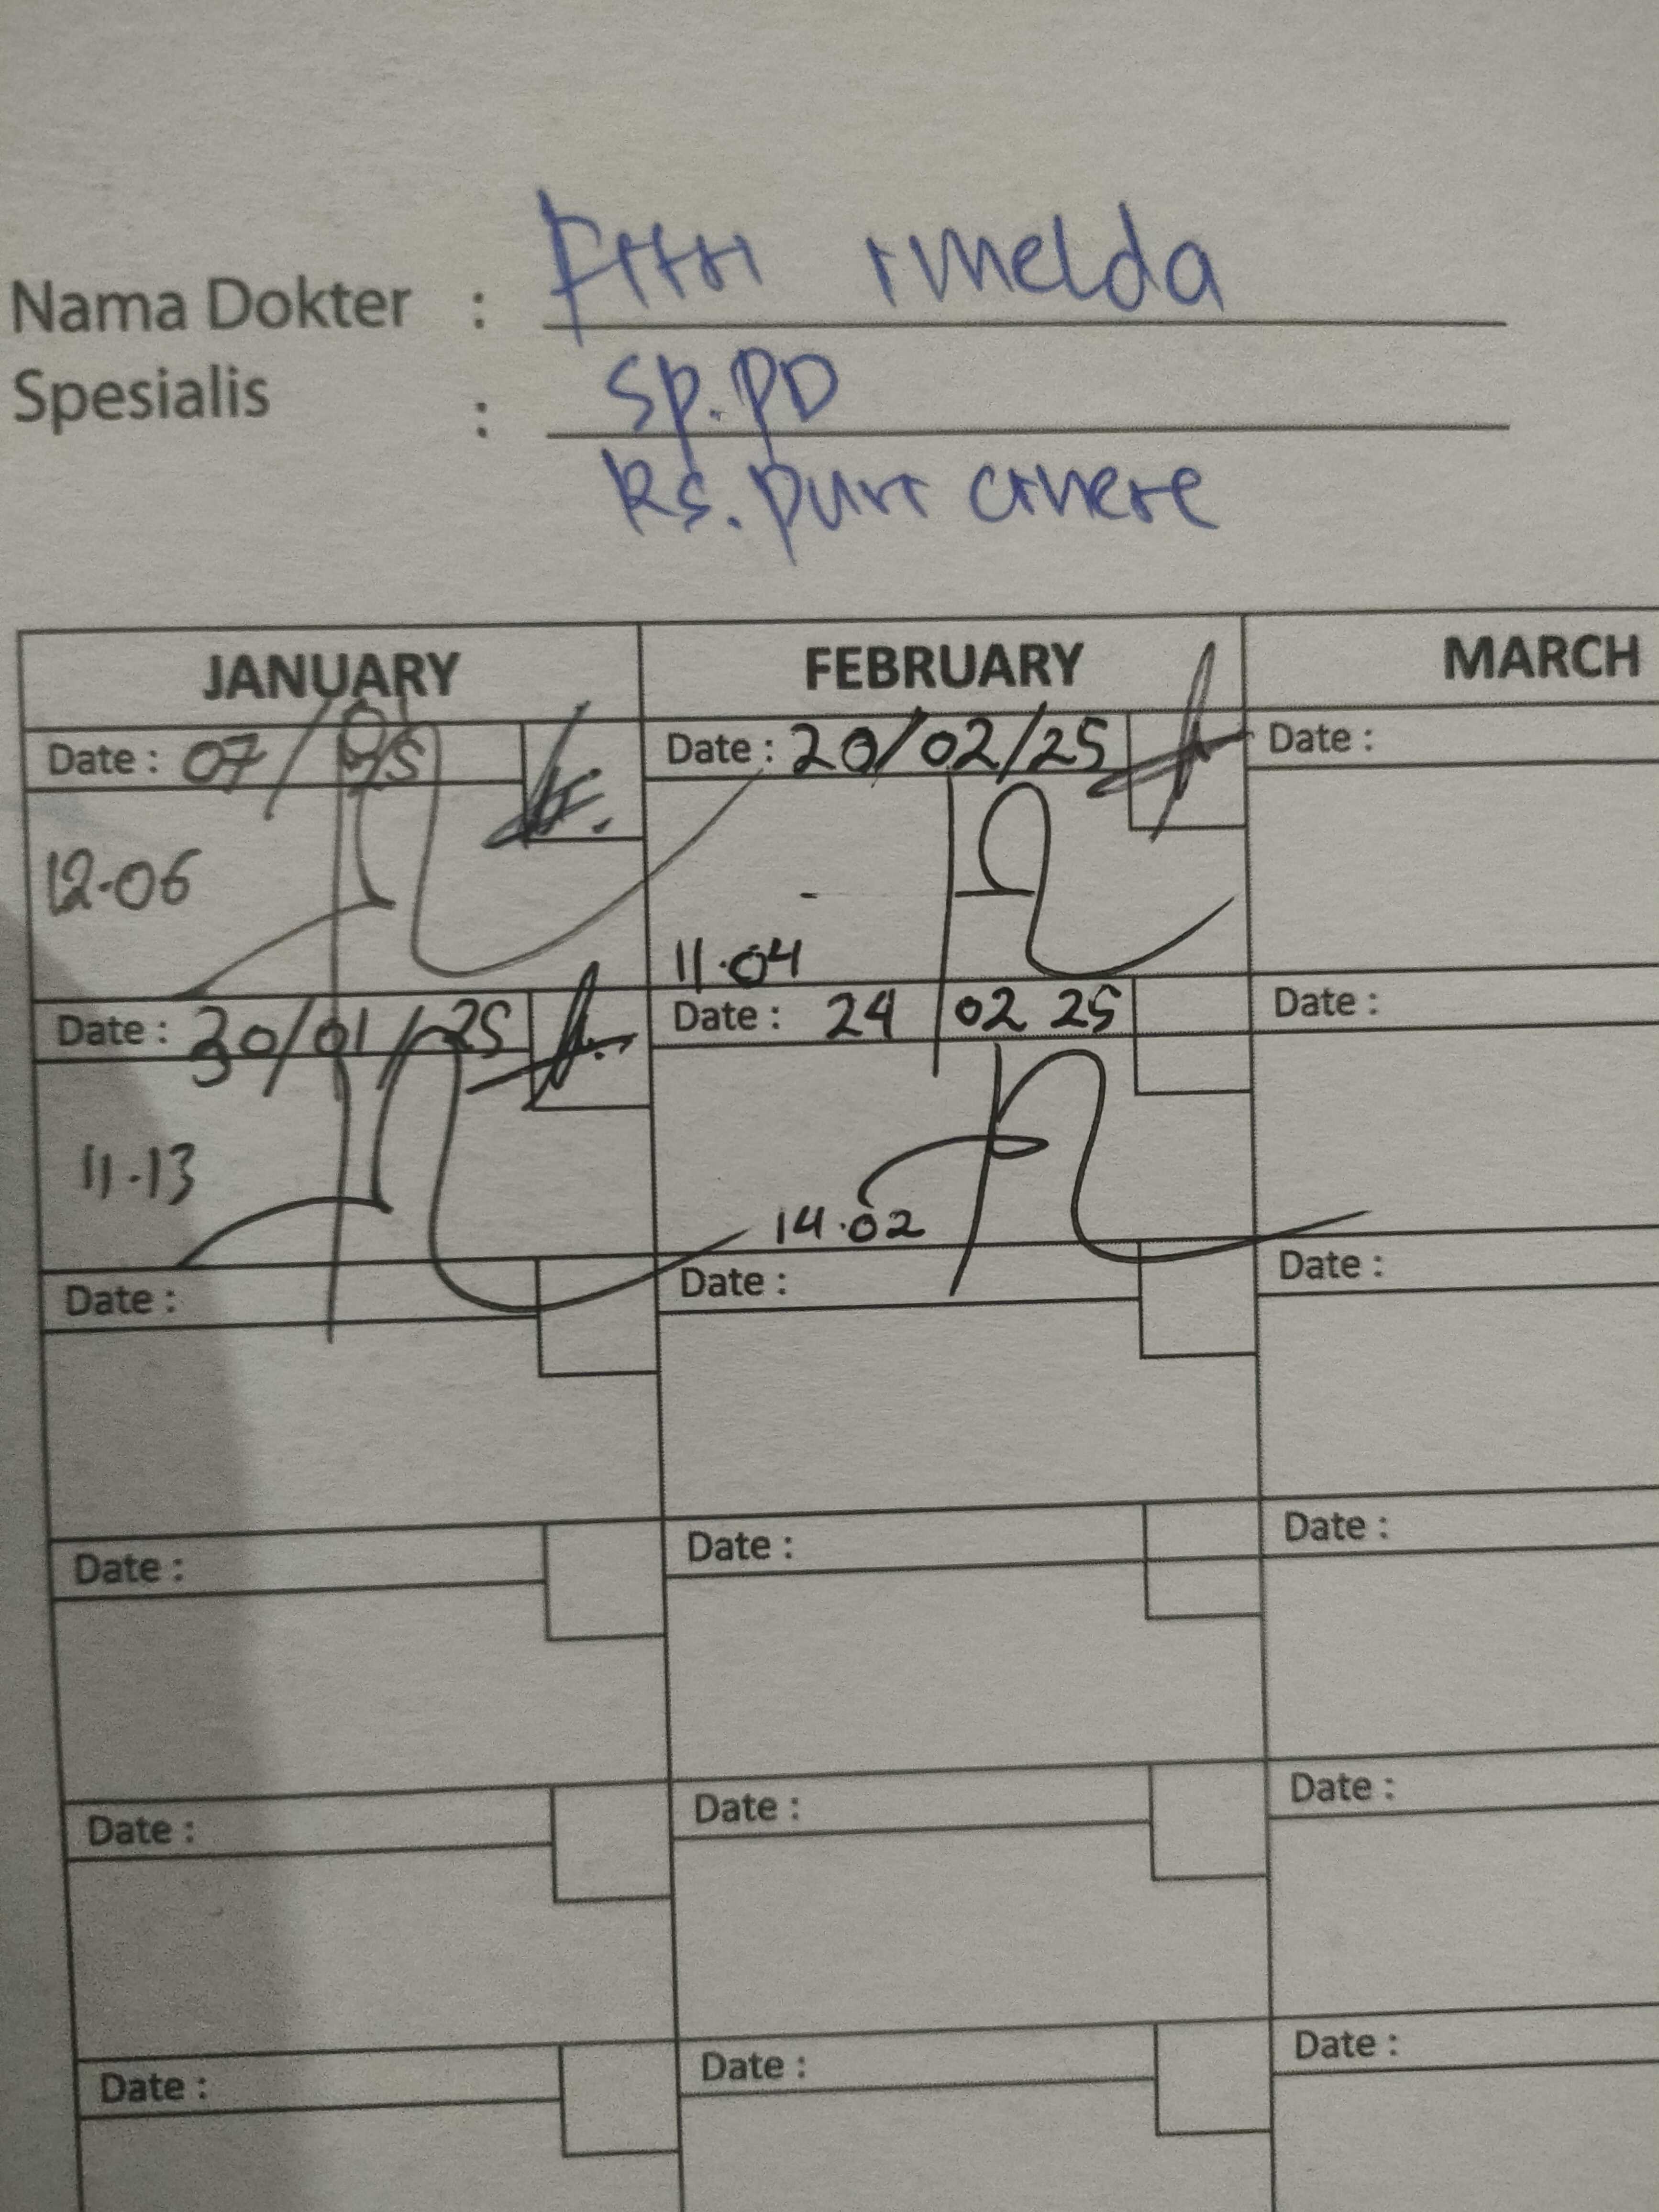 Nama Dokter : Fitri Imelda
Spesialis : Sp.PD
Rs. puri cinere
JANUARY FEBRUARY MARCH
Date : 07/ Date : 20/02/25 Date :
12.06
11.04
Date : 30/01/25 Date : 24 02 25 Date :
11.13
14.02
Date : Date : Date :
Date : Date : Date :
Date : Date : Date :
Date : Date : Date :